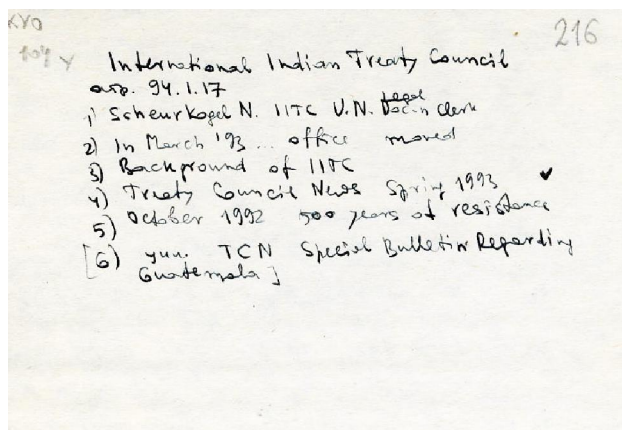 216
International Indian Treaty Council
94.1.17
1) Scheurkogel N. IITC U.N. Legal Docn Clerk
2) In March '93 ... office moved
3) Background of IITC
4) Treaty Council News Spring 1993 ✓
5) October 1992 500 years of resistance
[6) TCN Special Bulletin Regarding
Guatemala]